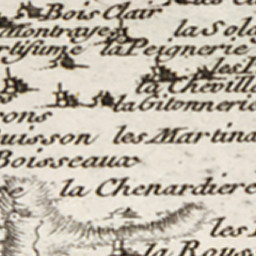 Bois Clair
Montrayer la
la Peignerie
les
la Cheville
la Gitonnerie
uisson les Martina
Boisseaux
la Chenardiere
les
la Rous